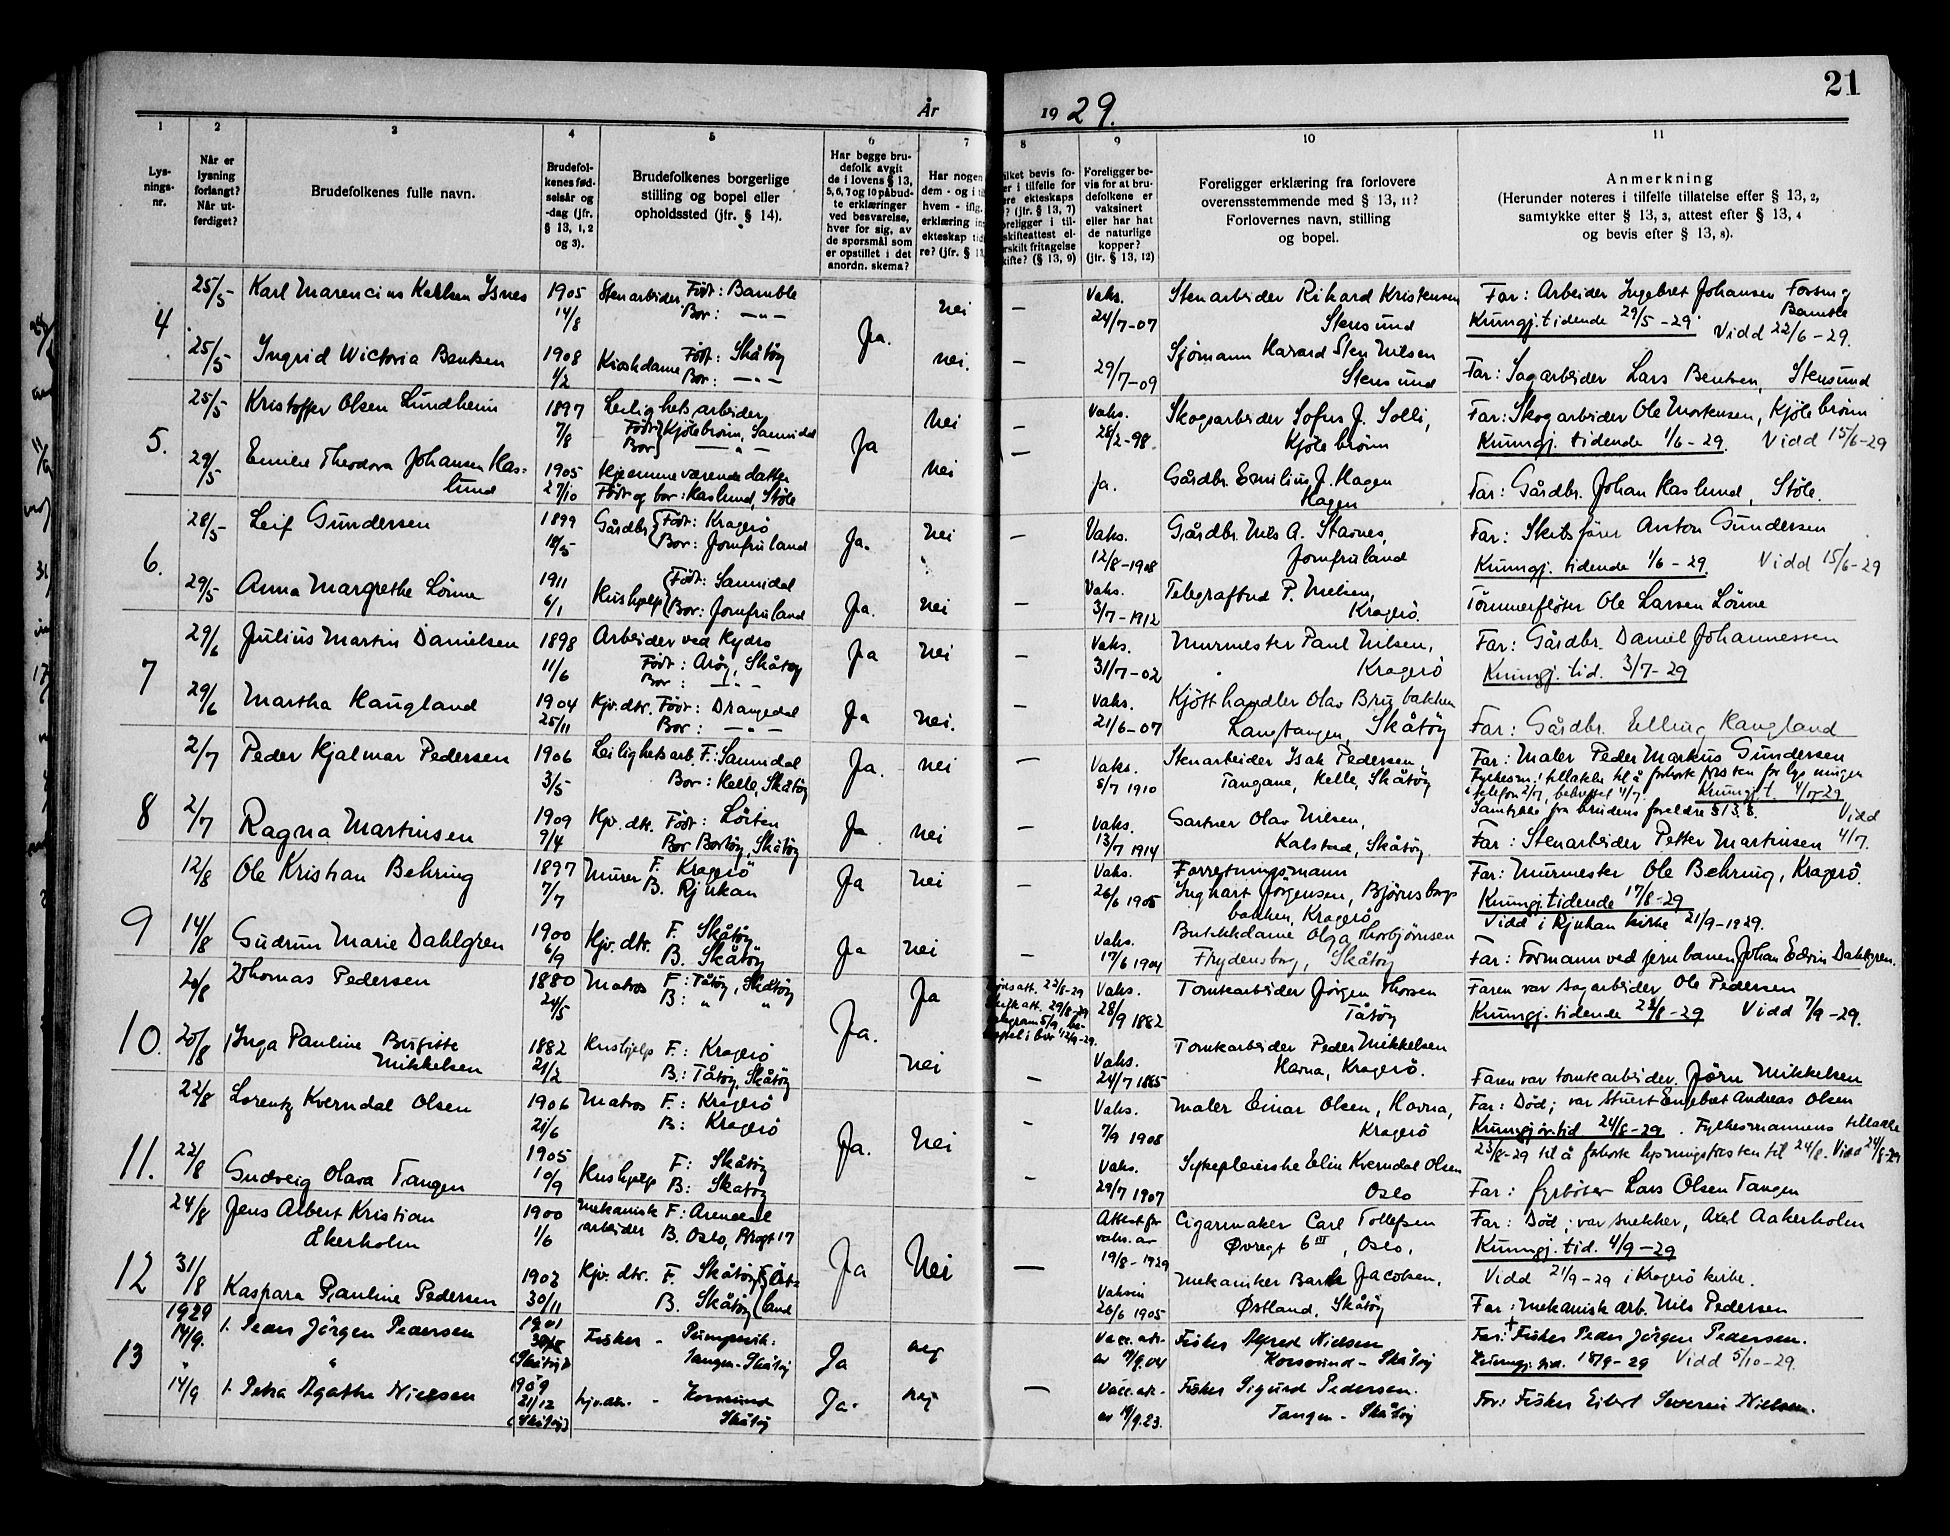 21
År 1929.
1 2 3 4 5 6 7 8 9 10 11
Lys-
nings-
nr.
Når er
lysning
forlangt?
Når ut-
ferdiget?
Brudefolkenes fulle navn.
Brudefol-
kenes fød-
selsår og
-dag (jfr.
§ 13, 1, 2
og 3).
Brudefolkenes borgerlige
stilling og bopel eller
opholdssted (jfr. § 14).
Har begge bru-
defolk avgit
de i lovens § 13,
5, 6, 7 og 10 påbud-
te erklæringer
ved besvarelse,
hver for sig, av
de spørsmål som
er opstillet i det
anordn. skema?
Har nogen
dem - og i
hvem - iflg.
erklæring in
ekteskap tid
re? (jfr. § 13
ilket bevis fo-
er i tilfelle for
ere ekteskaps
? (jfr. § 13, 7)
oreligger i til-
skifteattest el-
rskilt fritagelse
kifte? (§ 13, 9)
Foreligger be-
vis for at bru-
defolkene er
vaksinert
eller har hat
de naturlige
kopper?
(jfr. § 13, 12)
Foreligger erklæring fra forlovere
overensstemmende med § 13, 11?
Forlovernes navn, stilling
og bopel.
Anmerkning
(Herunder noteres i tilfelle tillatelse efter § 13, 2,
samtykke efter § 13, 3, attest efter § 13, 4
og bevis efter § 13, 8).
4
25/5- Karl Marencius Isnes 1905 Stenarbeider Født: Bamble nei — Vaks. Stenarbeider Rikard Kristensen Far: Arbeider Ingebret Johansen
14/8 Bor: —"— Ja. 24/7-07 Stensund Bamble
Kunngj. tidende 29/5-29 Vidd 22/6-29.
25/5 Ingrid Wictoria Bentsen 1908 Kioskdame Født: Skåtøy nei. — Sjømann Harard Sten Nilsen
1/2 Bor: —"— 29/7-09 Stensund Far: Sagarbeider Lars Bentsen, Stensund
5.
25/5 Kristoffer Olsen Lundheim 1897 Leilighetsarbeider nei — Vaks. Skogsarbeider Sofus J. Solli, Far: Skogarbeider Ole Mortensen, Kjølebrønn
7/8 Født Kjølebrønn, Sannidal Ja 28/2-98. Kjølebrønn Kunngj. tidende 1/6-29. Vidd 15/6-29
Bor —"—
29/5 Emilie Theodora Johansen Has- 1905 Hjemmeværende datter nei — ja. Gårdbr. Emilius J. Hagen
lund 27/10 Født og bor: Haslund, Støle Hagen Far: Gårdbr. Johan Haslund, Støle.
6.
28/5- Leif Gundersen 1899 Gårdbr. Født: Kragerø Ja. nei — Vaks. Gårdbr. Nils A. Stavnes, Far: Skibsfører Anton Gundersen
18/5 Bor: Jomfruland 12/8-1908 Jomfruland Kunngj. tidende 1/6-29. Vidd 15/6-29
29/5 Anna Margrethe Lønne 1911 Hushjelp Født: Sannidal Ja. nei — Vaks. Telegrafbud P. Nielsen, Tømmerfløter Ole Larsen Lønne
6/1 Bor: Jomfruland 3/7-1912 Kragerø.
7
29/6 Julius Martin Danielsen 1898 Arbeider ved Hydro Ja nei — Vaks. Murmester Paul Nilsen, Far: Gårdbr. Daniel Johannessen
11/6 Født: Arøy, Skåtøy 31/7-02 Kragerø Kunngj. tid. 3/7-29
Bor: —"—
29/6 Martha Haugland 1904 Hjv. dtr. Født: Drangedal Ja nei. — Vaks. Kjøtthandler Olav Brubakken
25/11 Bor: —"— 21/6-07 Langtangen, Skåtøy Far: Gårdbr. Elling Haugland
8
2/7 Peder Hjalmar Pedersen 1906 Leilighetsarb. F.: Sannidal Ja. nei — Vaks. Stenarbeider Isak Pedersen, Far: Maler Peder Markus Gundersen
3/5 Bor: Kelle, Skåtøy 5/7 1910 Tangane, Kelle, Skåtøy Fylkesm. tillatelse til å forkorte fristen for lysningen
telefon 2/7, bekreftet 4/7. Kunngj. t. 4/7-29
Samtykke fra brudens foreldre § 13, 3. Vidd
2/7 Ragna Martinsen 1909 Hjv. dtr. Født: Løiten Ja nei — Vaks. Gartner Olav Nilsen, 4/7.
9/4 Bor Borløy, Skåtøy 13/7 1914 Kalstad, Skåtøy. Far: Stenarbeider Petter Martinsen
9
12/8 Ole Kristian Behring 1897 Murer F. Kragerø Ja nei — Vaks. Forretningsmann Far: Murmester Ole Behring, Kragerø.
7/7 B. Rjukan 26/6 1905 Inghart Jørgensen, Bjørnsborgs Kunngj. tidende 17/8-29
bakken, Kragerø Vidd i Rjukan kirke 21/9-1929.
14/8 Gudrun Marie Dahlgren 1900 Hjv. dtr. F. Skåtøy Ja nei — Vaks. Butikkdame Olga Thorbjørnsen
6/9 B. Skåtøy 17/6 1904 Frydensborg, Skåtøy Far: Formann ved jernbanen Johan Edvin Dahlgren.
10.
20/8 Thomas Pedersen 1880 Matros F.: Tåtøy, Skåtøy Ja. Ja Vaks. Tomtearbeider Jørgen Thorsen Faren var sagarbeider Ole Pedersen
24/5 B: " " 28/9 1882 Tåtøy Kunngj. tidende 28/8-29 Vidd 7/9-29.
20/8 Inga Pauline Birgitte 1882 Hushjelp F.: Kragerø nei — Vaks. Tomtearbeider Peder Mikkelsen
Mikkelsen 21/2 B.: Tåtøy, Skåtøy 24/7 1885 Havna, Kragerø. Faren var tomtearbeider Jørn Mikkelsen
11.
22/8 Lorentz Kverndal Olsen 1906 Matros F.: Kragerø Ja. nei Vaks. Maler Einar Olsen, Havna, Far: Død; var Stuert Engebret Andreas Olsen
21/6 B: Kragerø 7/9 1908 Kragerø Kunngjør.tid 24/8-29. Fylkesmannens tillatelse
23/8-29 til å forkorte lysningsfristen til 24/8. Vidd 24/8-29
22/8 Gudveig Olava Tangen 1905 Hushjelp F: Skåtøy — Vaks. Sykepleierske Elin Kverndal Olsen
10/9 B: Skåtøy 29/7 1907 Oslo Far: fyrbøter Lars Olsen Tangen
12
24/8 Jens Albert Kristian 1900 Mekanisk F: Arendal Ja Nei — Attest for Cigarmaker Carl Tollefsen Far: Død; var snekker, Axel Aakerholm
Åkerholm 1/6 arbeider B. Oslo, 17 vaks. av Øvregt 6 III, Oslo, Kunngj. tid. 4/9-29
19/8-1929 Vidd 21/9-29 i Kragerø kirke.
31/8 Kaspara Pauline Pedersen 1902 Hjv. dtr. F. Skåtøy Øst- Vaksin Mekaniker Jacobsen,
30/11 B. Skåtøy land 26/6 1905 Østland, Skåtøy Far: Mekanisk arb. Nils Pedersen
13
1929
14/9. 1. Peder Jørgen Pedersen 1901 Fisker - Ja nei Vacc. att. Fisker Alfred Nielsen Far: † Fisker Peder Jørgen Pedersen.
(Skåtøy) Tangen - Skåtøy av 19/9.04 Korssund - Skåtøy Kunngj. tid. 18/9-29 Vidd 5/10-29.
14/9 1. Petra Agathe Nielsen 1909 hjv.dtr. - Korssund Ja. nei — Vacc. att. Fisker Sigurd Pedersen. Far: Fisker Eibert Severin Nielsen.
21/12 Skåtøy av 19/9.23. Tangen - Skåtøy
(Skåtøy)